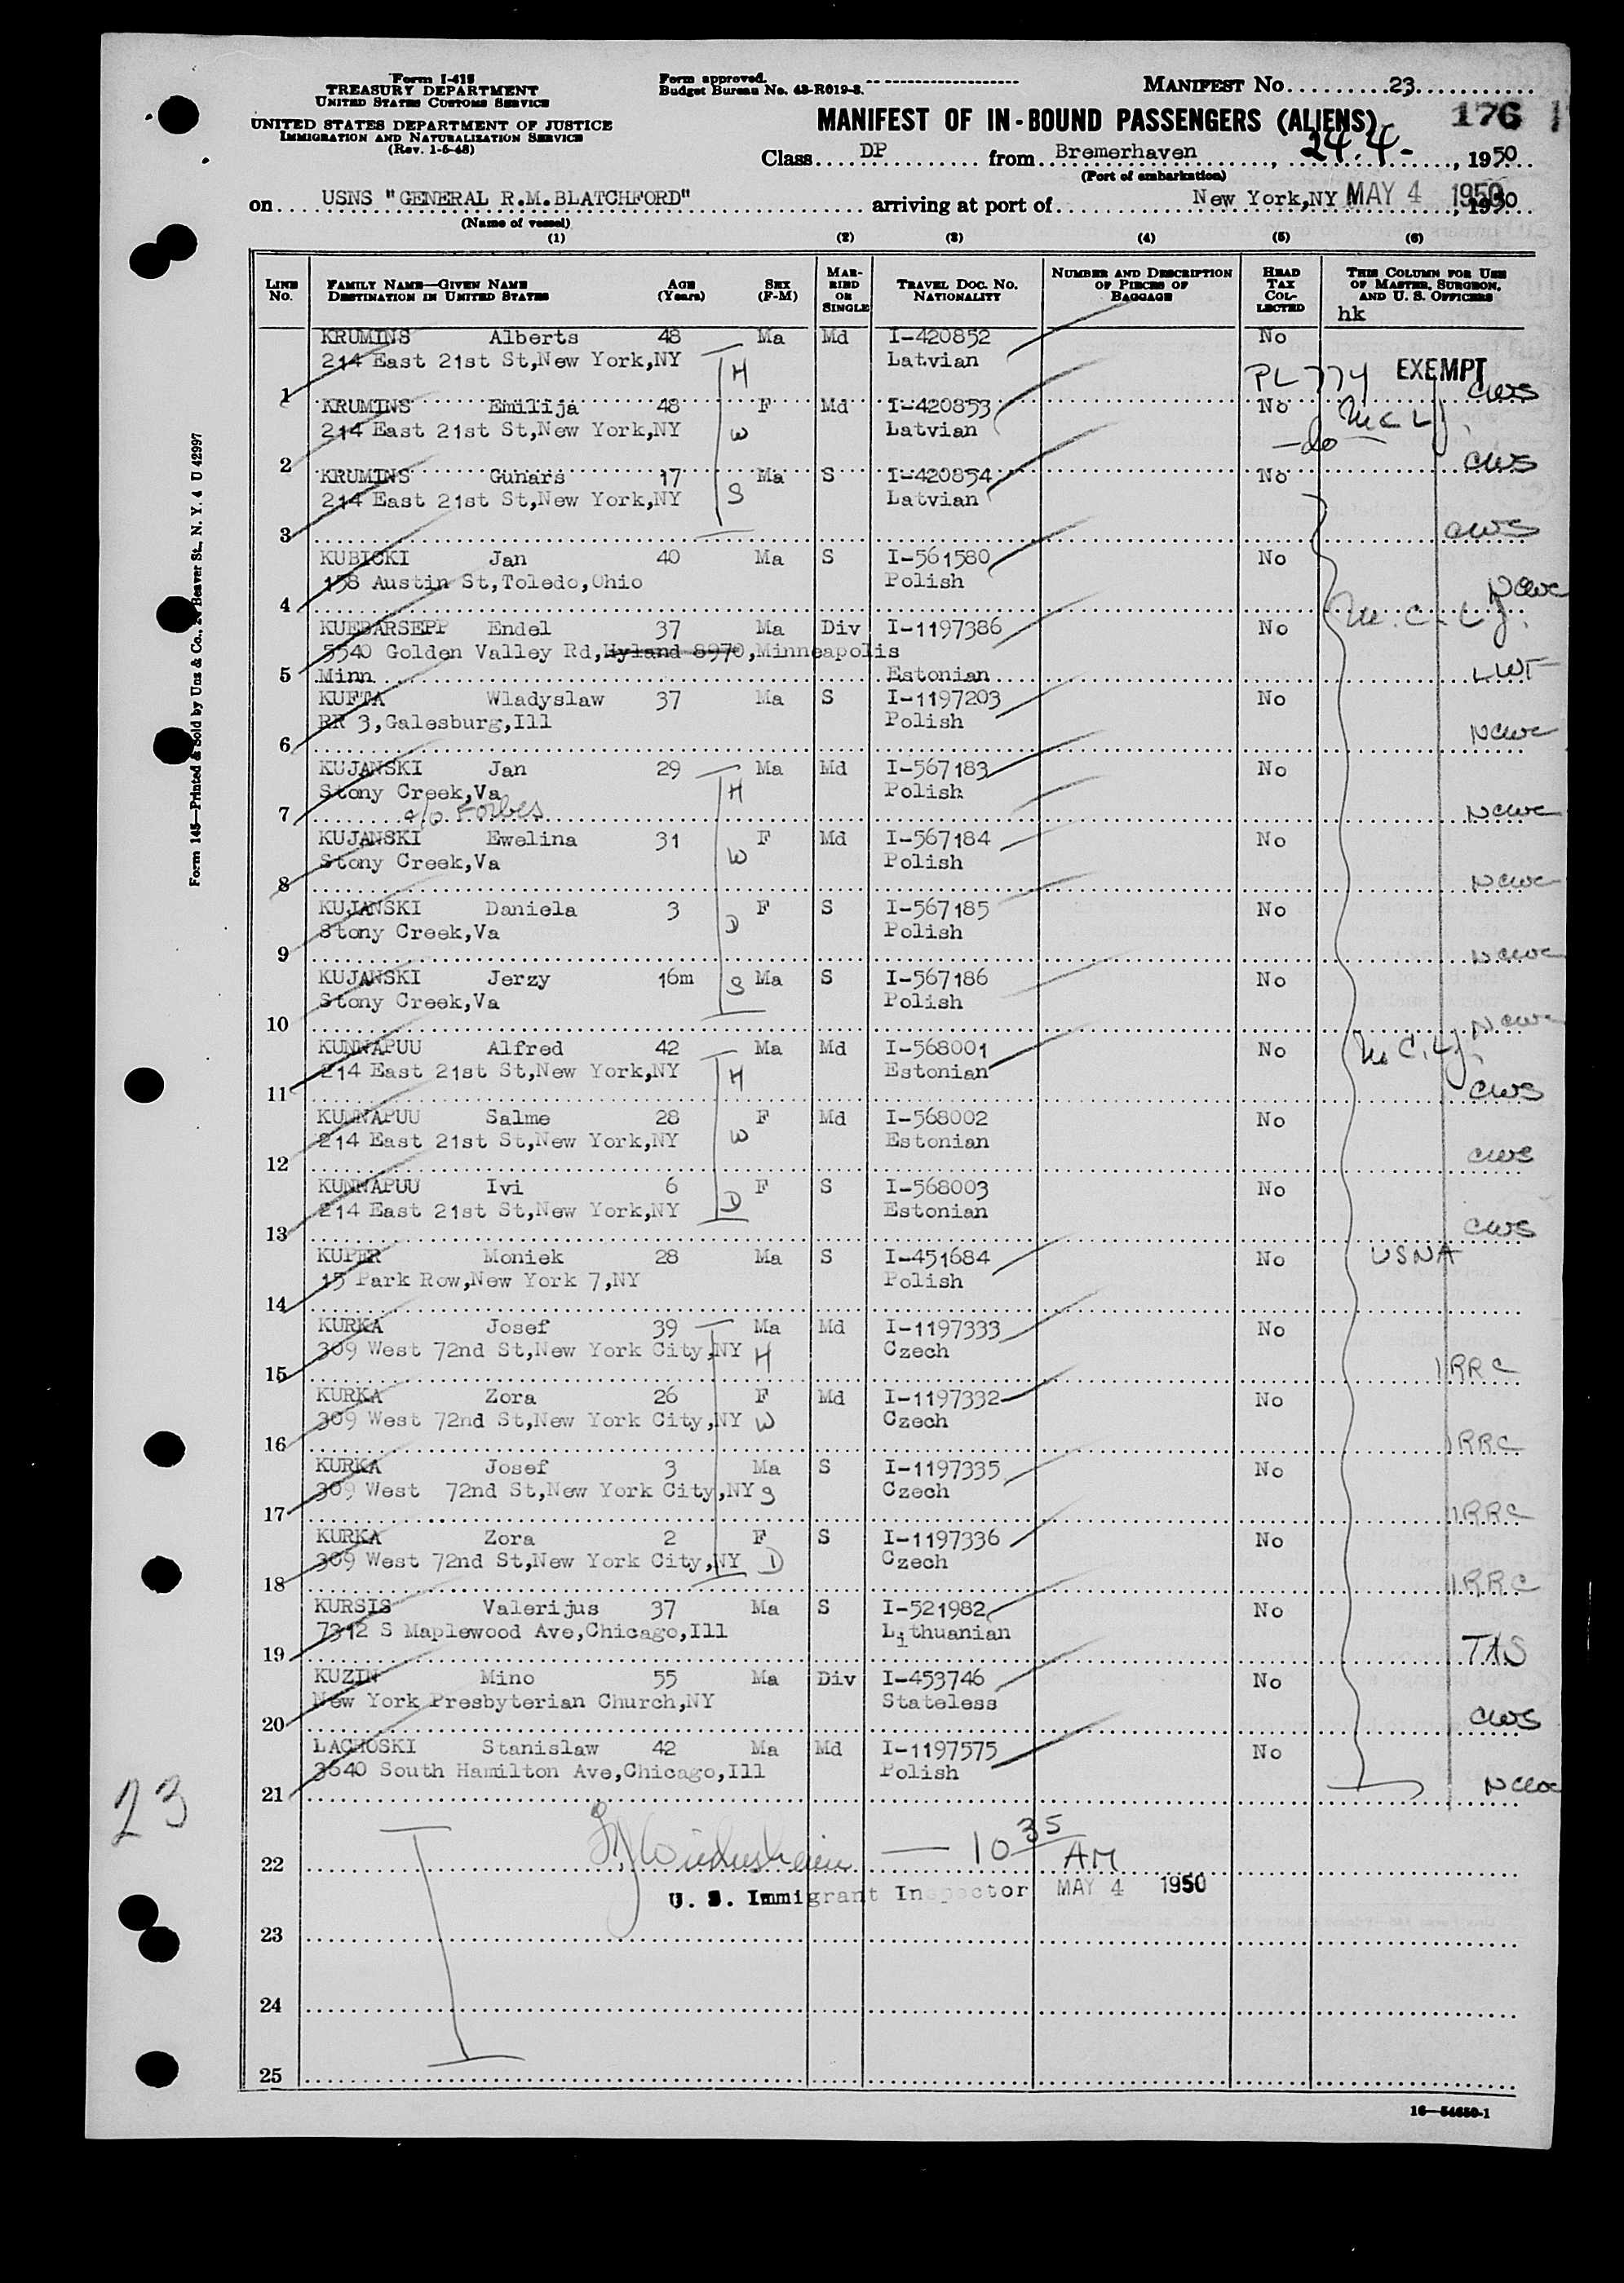 Form I-418
TREASURY DEPARTMENT
UNITED STATES CUSTOMS SERVICE
UNITED STATES DEPARTMENT OF JUSTICE
IMMIGRATION AND NATURALIZATION SERVICE
(Rev. 1-5-48)
Form approved.
Budget Bureau No. 43-R019-3.
MANIFEST No. 23
MANIFEST OF IN-BOUND PASSENGERS (ALIENS) 176
Class DP from Bremerhaven, 24.4-, 1950
(Port of embarkation)
on USNS "GENERAL R.M.BLATCHFORD" arriving at port of New York,NY MAY 4 1950, 1950
(Name of vessel)
(1) (2) (3) (4) (5) (6)
LINE No. FAMILY NAME—GIVEN NAME DESTINATION IN UNITED STATES AGE (Years) SEX (F-M) MARRIED OR SINGLE TRAVEL DOC. NO. NATIONALITY NUMBER AND DESCRIPTION OF PIECES OF BAGGAGE HEAD TAX COLLECTED THIS COLUMN FOR USE OF MASTER, SURGEON, AND U. S. OFFICERS
hk
KRUMINS Alberts 48 Ma Md I-420852 No
214 East 21st St,New York,NY H Latvian PL 774 EXEMPT
1 CWS
KRUMINS Emilija 48 F Md I-420853 No
214 East 21st St,New York,NY W Latvian -do-
2 CWS
KRUMINS Gunars 17 Ma S I-420854 No
214 East 21st St,New York,NY S Latvian
3 CWS
KUBICKI Jan 40 Ma S I-561580 No
158 Austin St,Toledo,Ohio Polish
4 NCWC
KUEBARSEPP Endel 37 Ma Div I-1197386 No
5540 Golden Valley Rd,Hyland 8970,Minneapolis
5 Minn Estonian LWF
KUFTA Wladyslaw 37 Ma S I-1197203 No
RR 3,Galesburg,Ill Polish
6 NCWC
KUJANSKI Jan 29 Ma Md I-567183 No
Stony Creek,Va H Polish
7 c/o Forbes NCWC
KUJANSKI Ewelina 31 F Md I-567184 No
Stony Creek,Va W Polish
8 NCWC
KUJANSKI Daniela 3 F S I-567185 No
Stony Creek,Va D Polish
9 NCWC
KUJANSKI Jerzy 16m Ma S I-567186 No
Stony Creek,Va S Polish
10 NCWC
KUNNAPUU Alfred 42 Ma Md I-568001 No
214 East 21st St,New York,NY H Estonian
11 CWS
KUNNAPUU Salme 28 F Md I-568002 No
214 East 21st St,New York,NY W Estonian
12 CWS
KUNNAPUU Ivi 6 F S I-568003 No
214 East 21st St,New York,NY D Estonian
13 CWS
KUPER Moniek 28 Ma S I-451684 No USNA
15 Park Row,New York 7,NY Polish
14
KURKA Josef 39 Ma Md I-1197333 No
309 West 72nd St,New York City,NY H Czech
15 IRRC
KURKA Zora 26 F Md I-1197332 No
309 West 72nd St,New York City,NY W Czech
16 IRRC
KURKA Josef 3 Ma S I-1197335 No
309 West 72nd St,New York City,NY S Czech
17 IRRC
KURKA Zora 2 F S I-1197336 No
309 West 72nd St,New York City,NY D Czech
18 IRRC
KURSIS Valerijus 37 Ma S I-521982 No
7312 S Maplewood Ave,Chicago,Ill Lithuanian
19
KUZIN Mino 55 Ma Div I-453746 No
New York Presbyterian Church,NY Stateless
20 CWS
LACHOSKI Stanislaw 42 Ma Md I-1197575 No
3640 South Hamilton Ave,Chicago,Ill Polish
21 NCWC
23
22 10 35 AM
U. S. Immigrant Inspector MAY 4 1950
23
24
25
16—54650-1
Form 145—Printed & Sold by Unz & Co., 24 Beaver St., N. Y. 4 U 42997